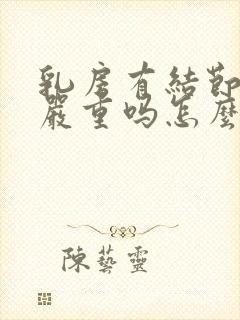 乳房有結節
嚴重吗怎麼
陳藝靈